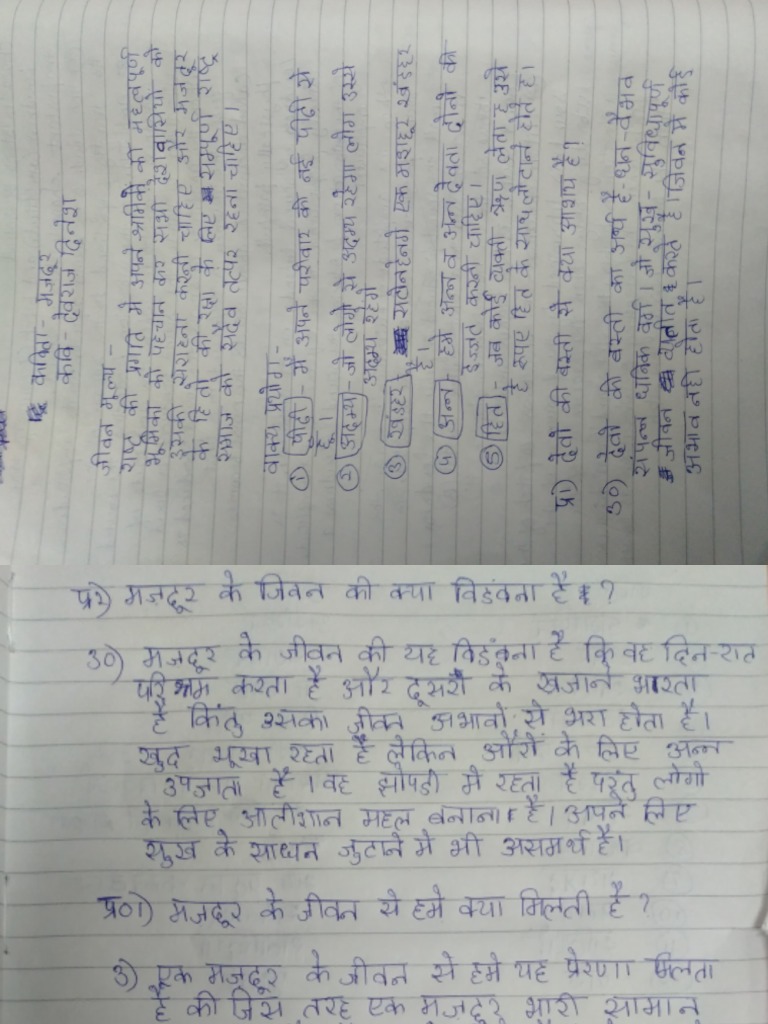 कविता - मजदूर
कवि - देवराज दिनेश
जीवन मूल्य -
राष्ट्र की प्रगति मे अपने श्रमिकों की महत्वपूर्ण
भूमिका को पहचान कर सभी देशवासियो को
उसकी सराहना करनी चाहिए और मजदूर
के हितो की रक्षा के लिए सम्पूर्ण राष्ट्र
समाज को सदैव तत्पर रहना चाहिए।
वाक्य प्रयोग -
① पीढी - मै अपने परिवार की नई पीढी से
हूँ।
② अदम्य - जो लोगो से अदम्य रहेगा लोग उससे
अदम्य रहेगे
③ खंडहर एक मशहूर खंडहर
है।
④ अन्न - हमे अन्न व अन्न देवता दोनो की
इज्जत करनी चाहिए।
⑤ हित - जब कोई व्यक्ती ऋण लेता है उसे
रूपए हित के साथ लोटाने होते है।
प्र1) देवो की बस्ती से क्या आशय है?
उ0) देवो की बस्ती का अर्थ है - धन - वैभव
संपन्न धनिक वर्ग। जो सुख - सुविधापूर्ण
जीवन व्यतीत करते है। जिवन मे कोई
अभाव नही होता है।
प्र2) मजदूर के जिवन की क्या विडंबना है ?
उ0) मजदूर के जीवन की यह विडंबना है कि वह दिन-रात
परिश्रम करता है और दूसरो के खजाने भारता
है किंतु उसका जीवन अभावो से भरा होता है।
खुद भूखा रहता है लेकिन औरों के लिए अन्न
उपजाता है। वह झोपडी मे रहता है परंतु लोगो
के लिए आलीशान महल बनाना है। अपने लिए
सुख के साधन जुटाने मे भी असमर्थ है।
प्र01) मजदूर के जीवन से हमे क्या मिलती है ?
उ) एक मजदूर के जीवन से हमे यह प्रेरणा मिलता
है की जिस तरह एक मजदूर भारी सामान